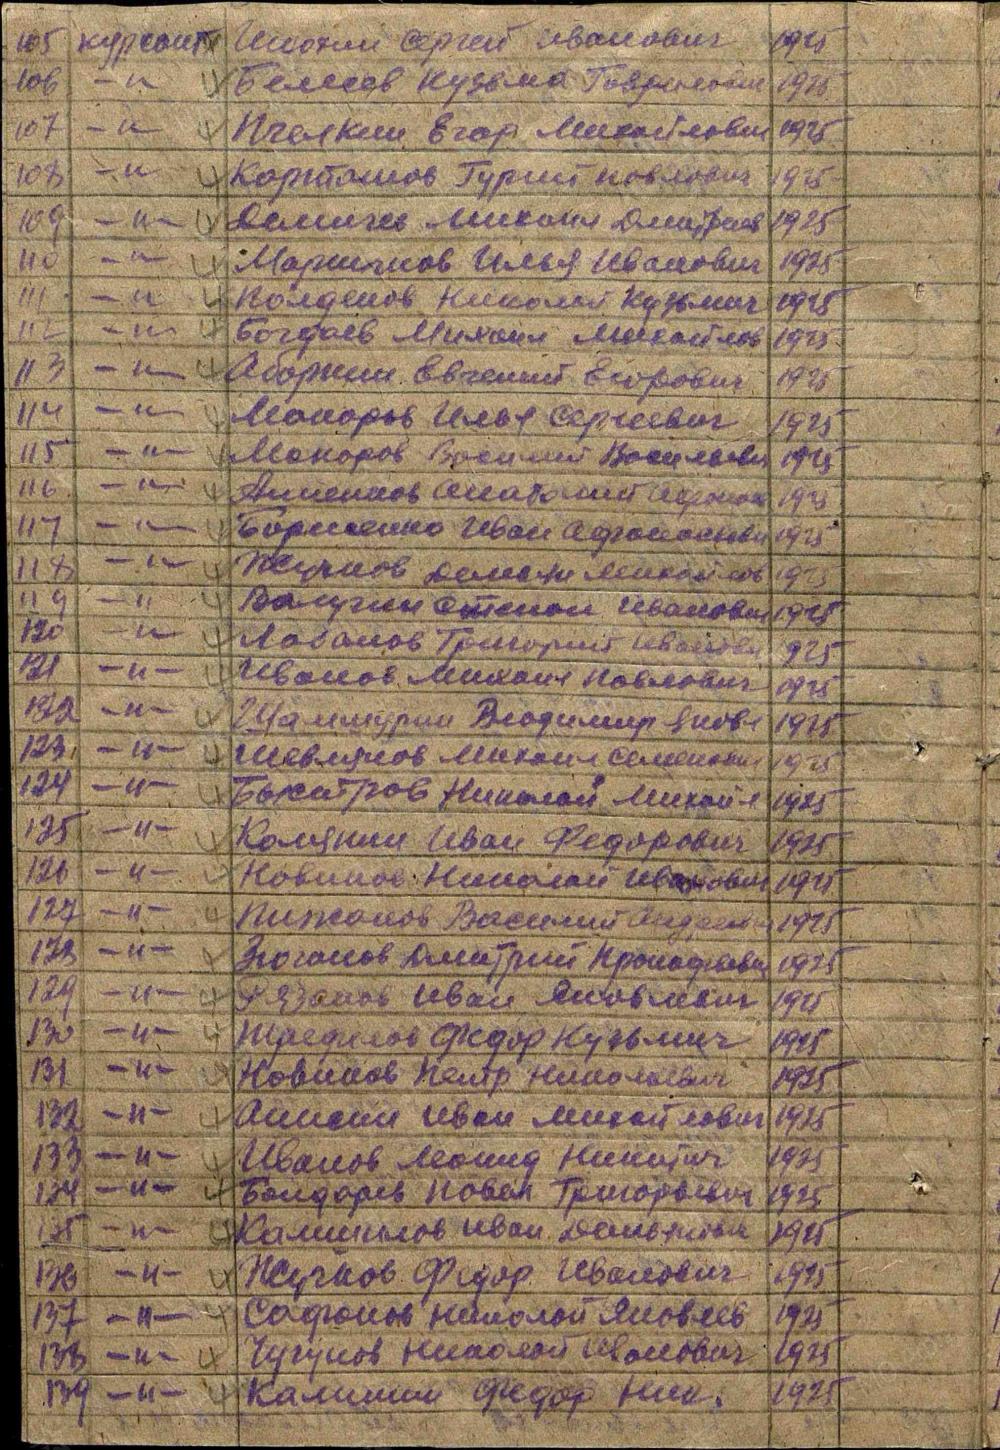 105 курсант Илюхин Сергей Иванович 1925
106 -"- Белеев Кузьма Гаврилович 1925
107 -"- Пчелкин Егор Михайлович 1925
108 -"- Карташов Гурий Павлович 1925
109 -"- Демичев Михаил Дмитриев 1925
110 -"- Илья Иванович 1925
111 -"- Николай Кузьмич 1925
112 -"- Богдаев Михаил Михайлов 1925
113 -"- Аборкин Евгений Егорович 1925
114 -"- Макаров Илья Сергеевич 1925
115 -"- Макаров Василий Васильевич 1925
116 -"- Анатолий 1925
117 -"- Борисенко Иван Афанасьеви 1925
118 -"- Жучков Михайлов 1925
119 -"- Степан Иванович 1925
120 -"- Лобанов Григорий Иванови 925
121 -"- Иванов Михаил Павлович 1925
122 -"- Шаншурин Владимир Яковл 1925
123 -"- Шевляков Михаил Семенович 1925
124 -"- Быстров Николай Михайл 1925
125 -"- Калянин Иван Федорович 1925
126 -"- Новиков Николай Иванович 1925
127 -"- Пижанов Василий Андреевич 1925
128 -"- Зюганов Дмитрий Прокофьеви 1925
129 -"- Рязанов Иван Яковлевич 1925
130 -"- Трефилов Федор Кузьмич 1925
131 -"- Новиков Петр Николаевич 1925
132 -"- Анисин Иван Михайлович 1925
133 -"- Иванов Леонид Никитич 1925
134 -"- Бондарев Павел Григорьевич 1925
135 -"- Иван 1925
136 -"- Жучков Федор Иванович 1925
137 -"- Сафонов Николай Яковлев 1925
138 -"- Чугунов Николай Иванович 1925
139 -"- Калинин Федор Ник. 1925